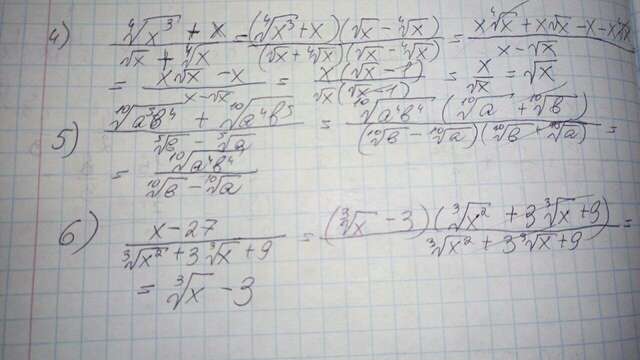 4) \frac{\sqrt[4]{x^3} + x}{\sqrt{x} + \sqrt[4]{x}} = \frac{(\sqrt[4]{x^3} + x)(\sqrt{x} - \sqrt[4]{x})}{(\sqrt{x} + \sqrt[4]{x})(\sqrt{x} - \sqrt[4]{x})} = \frac{x\sqrt[4]{x} + x\sqrt{x} - x - x\sqrt[4]{x}}{x - \sqrt{x}}
= \frac{x\sqrt{x} - x}{x - \sqrt{x}} = \frac{x(\sqrt{x} - 1)}{\sqrt{x}(\sqrt{x} - 1)} = \frac{x}{\sqrt{x}} = \sqrt{x}
5) \frac{\sqrt[10]{a^5b^4} + \sqrt[10]{a^4b^5}}{\sqrt[5]{b} - \sqrt[5]{a}} = \frac{\sqrt[10]{a^4b^4}(\sqrt[10]{a} + \sqrt[10]{b})}{(\sqrt[10]{b} - \sqrt[10]{a})(\sqrt[10]{b} + \sqrt[10]{a})} =
= \frac{\sqrt[10]{a^4b^4}}{\sqrt[10]{b} - \sqrt[10]{a}}
6) \frac{x - 27}{\sqrt[3]{x^2} + 3\sqrt[3]{x} + 9} = \frac{(\sqrt[3]{x} - 3)(\sqrt[3]{x^2} + 3\sqrt[3]{x} + 9)}{\sqrt[3]{x^2} + 3\sqrt[3]{x} + 9} =
= \sqrt[3]{x} - 3